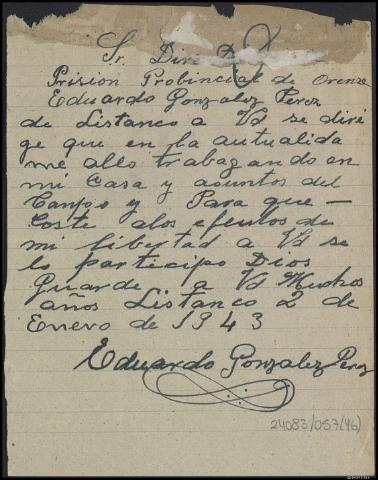 Sr. Dire D
Prision Probincial de Orense
Eduardo Gonzalez Perez
de Listanco a Vd se diré
ge que en la autualida
me allo trabagando en
mi Casa y asuntos del
Campo y Para que —
Coste alos efeutos de
mi libertad a Vd se
lo participo Dios
Guarde a Vd Muchos
años Listanco 2 de
Enero de 1943
Eduardo Gonzalez Perez
24083/057(46)